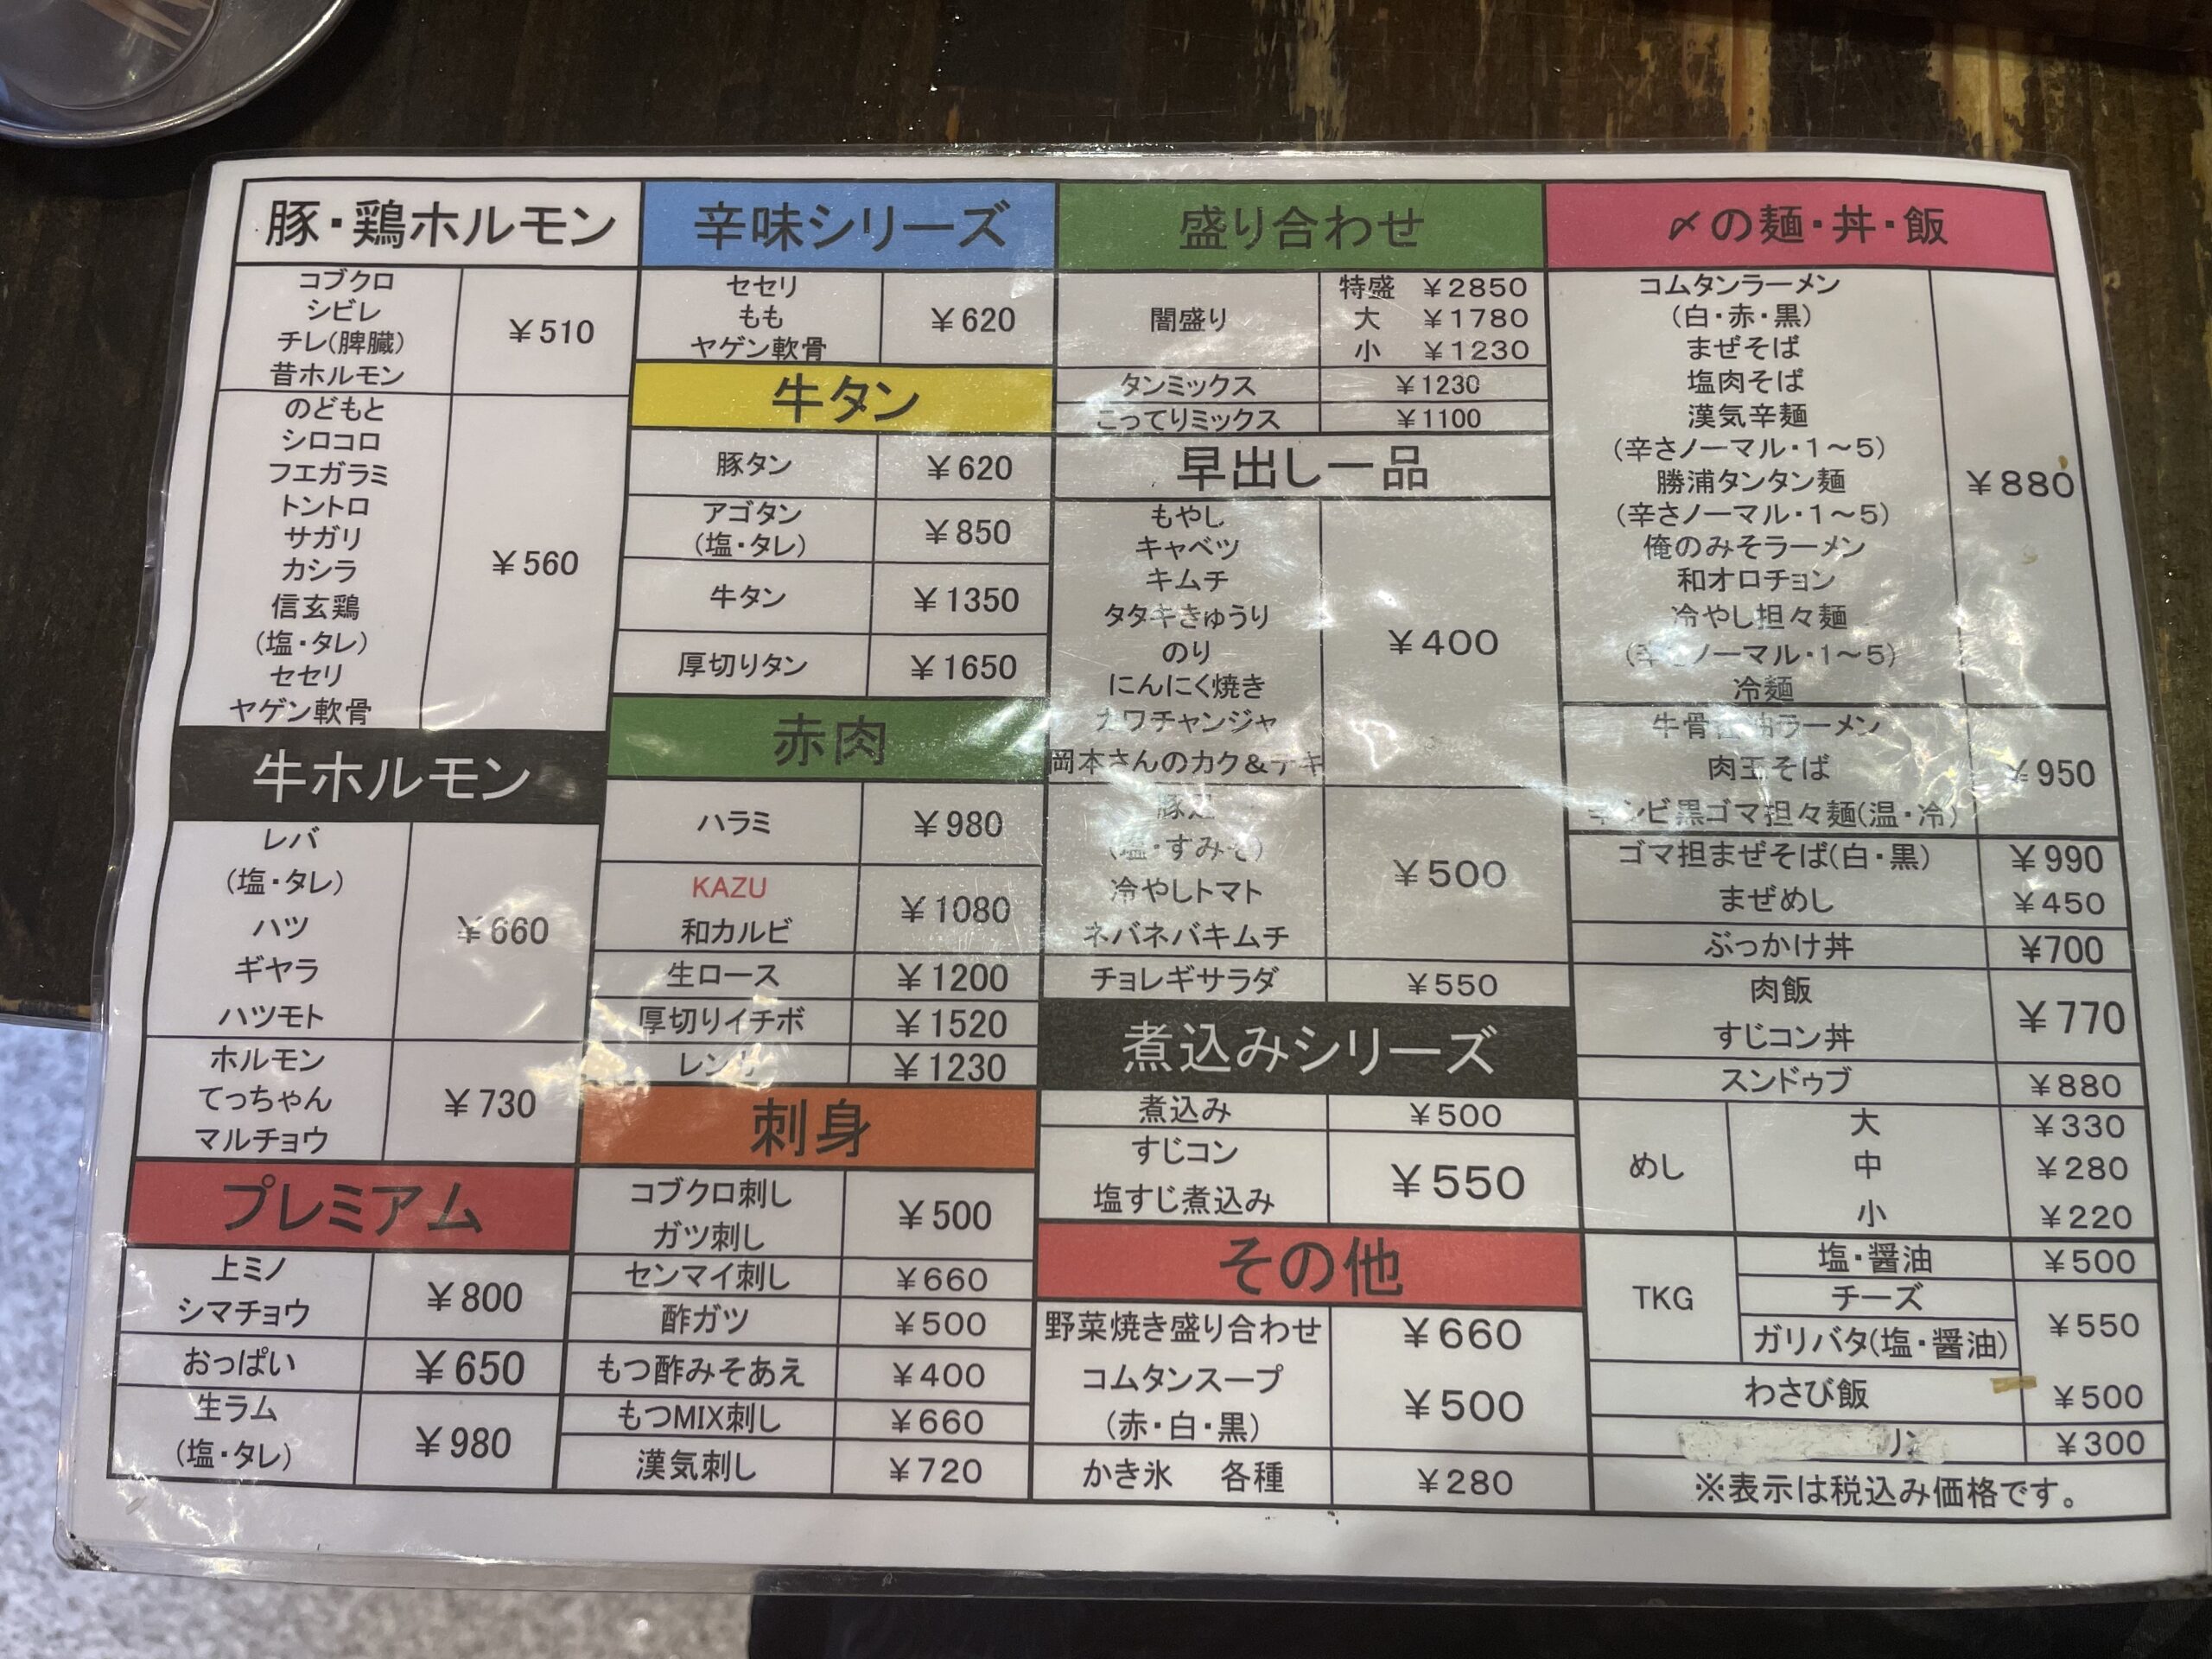 豚・鶏ホルモン
コブクロ
シビレ
チレ(脾臓)
昔ホルモン
￥510
のどもと
シロコロ
フエガラミ
トントロ
サガリ
カシラ
信玄鶏
(塩・タレ)
セセリ
ヤゲン軟骨
￥560
牛ホルモン
レバ
(塩・タレ)
ハツ
ギヤラ
ハツモト
￥660
ホルモン
てっちゃん
マルチョウ
￥730
プレミアム
上ミノ
シマチョウ
￥800
おっぱい ￥650
生ラム
(塩・タレ)
￥980
辛味シリーズ
セセリ
もも
ヤゲン軟骨
￥620
牛タン
豚タン ￥620
アゴタン
(塩・タレ)
￥850
牛タン ￥1350
厚切りタン ￥1650
赤肉
ハラミ ￥980
KAZU
和カルビ
￥1080
生ロース ￥1200
厚切りイチボ ￥1520
￥1230
刺身
コブクロ刺し
ガツ刺し
￥500
センマイ刺し ￥660
酢ガツ ￥500
もつ酢みそあえ ￥400
もつMIX刺し ￥660
漢気刺し ￥720
盛り合わせ
闇盛り
特盛 ￥2850
大 ￥1780
小 ￥1230
タンミックス ￥1230
こってりミックス ￥1100
早出し一品
もやし
キャベツ
キムチ
タタキきゅうり
のり
にんにく焼き
カワチャンジャ
岡本さんのカク＆テキ
￥400
豚足
(塩・すみそ)
冷やしトマト
ネバネバキムチ
￥500
チョレギサラダ ￥550
煮込みシリーズ
煮込み ￥500
すじコン
塩すじ煮込み
￥550
その他
野菜焼き盛り合わせ ￥660
コムタンスープ
(赤・白・黒)
￥500
かき氷 各種 ￥280
〆の麺・丼・飯
コムタンラーメン
(白・赤・黒)
まぜそば
塩肉そば
漢気辛麺
(辛さノーマル・1～5)
勝浦タンタン麺
(辛さノーマル・1～5)
俺のみそラーメン
和オロチョン
冷やし担々麺
(辛さノーマル・1～5)
冷麺
￥880
牛骨醤油ラーメン
肉玉そば
黒ゴマ担々麺(温・冷)
￥950
ゴマ担まぜそば(白・黒) ￥990
まぜめし ￥450
ぶっかけ丼 ¥700
肉飯
すじコン丼
￥770
スンドゥブ ￥880
めし
大 ￥330
中 ￥280
小 ￥220
TKG
塩・醤油 ￥500
チーズ
ガリバタ(塩・醤油)
￥550
わさび飯 ￥500
￥300
※表示は税込み価格です。